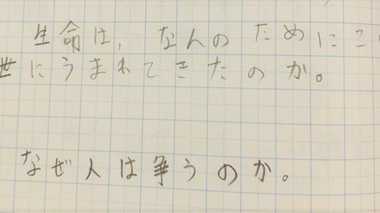 生命は，なんのためにこ
世にうまれてきたのか。
なぜ人は争うのか。